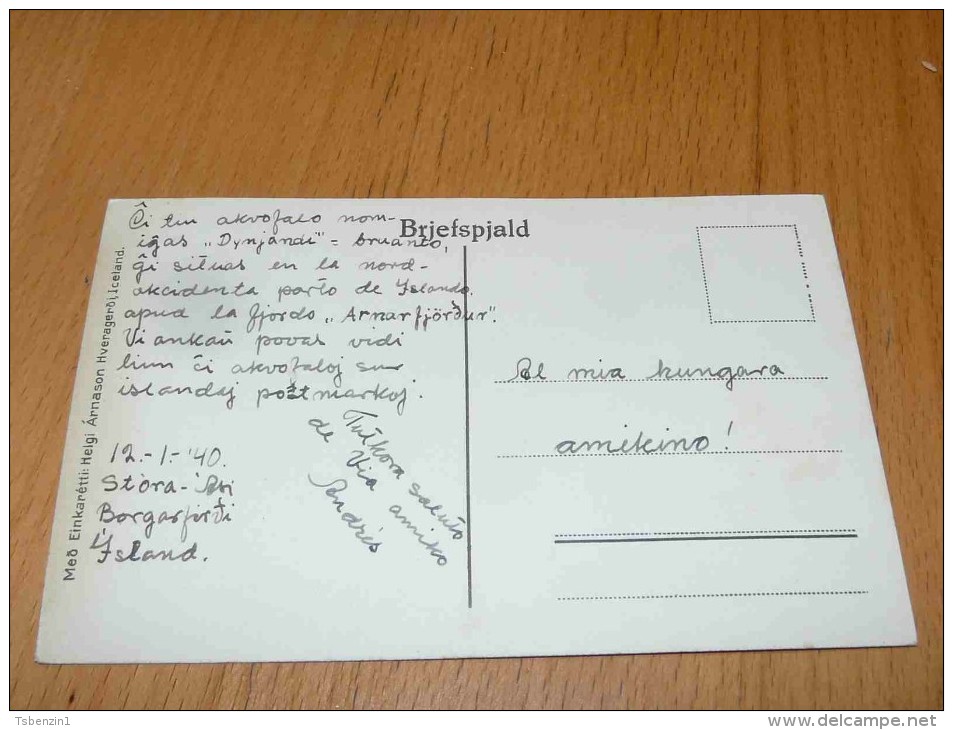 Ĉi tiu akvofalo nom-
iĝas „Dynjandi" = bruanto,
ĝi situas en la nord-
okcidenta parto de Islando.
apud la fjordo „Arnarfjörður".
Vi ankaŭ povas vidi
tiun ĉi akvofaloj sur
islandaj poŝtmarkoj.
12.-1.-'40.
Stóra-Ási
Borgarfirði
Ísland.
Tutkora saluto
de Via amiko
Andrés
Brjefspjald
Al mia hungara
amikino!
Með Einkarétti: Helgi Árnason Hveragerði, Iceland.
Tsbenzin1
www.delcampe.net